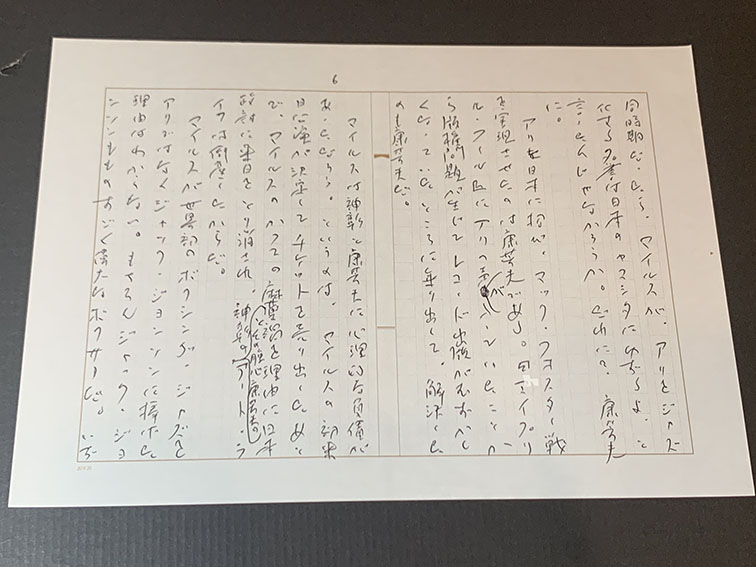 6
同時期だったら、マイルスが、アリをジャズ
化する名誉は日本のヤスシタにゆずるよ、と
言ったんじゃなかろうか。だれに? 康芳夫
に。
アリを日本に招び、マック・フォスター戦
を実現させたのは康芳夫である。エイプリ
ル・フール皿にアリの声が入っていたことか
ら版権問題が生じてレコード出版がむずかし
くなっていたところに乗り出して、解決した
のも康芳夫だ。
マイルスは神彰と康芳夫に心理的な負債が
あっただろう。というのは、マイルスの初来
日公演が決定してチケットを売り出したあと
で、マイルスのかつての麻薬禍を理由に日本
政府に来日をとり消され、神彰(と彼の腹心康芳夫)のアート・ラ
イフは倒産したからだ。
マイルスが世界初のボクシング・ジャズを
アリではなくジャック・ジョンソンに捧げた
理由はわからない。もちろんジャック・ジョ
ンソンもものすごく偉大なボクサーだ。いず